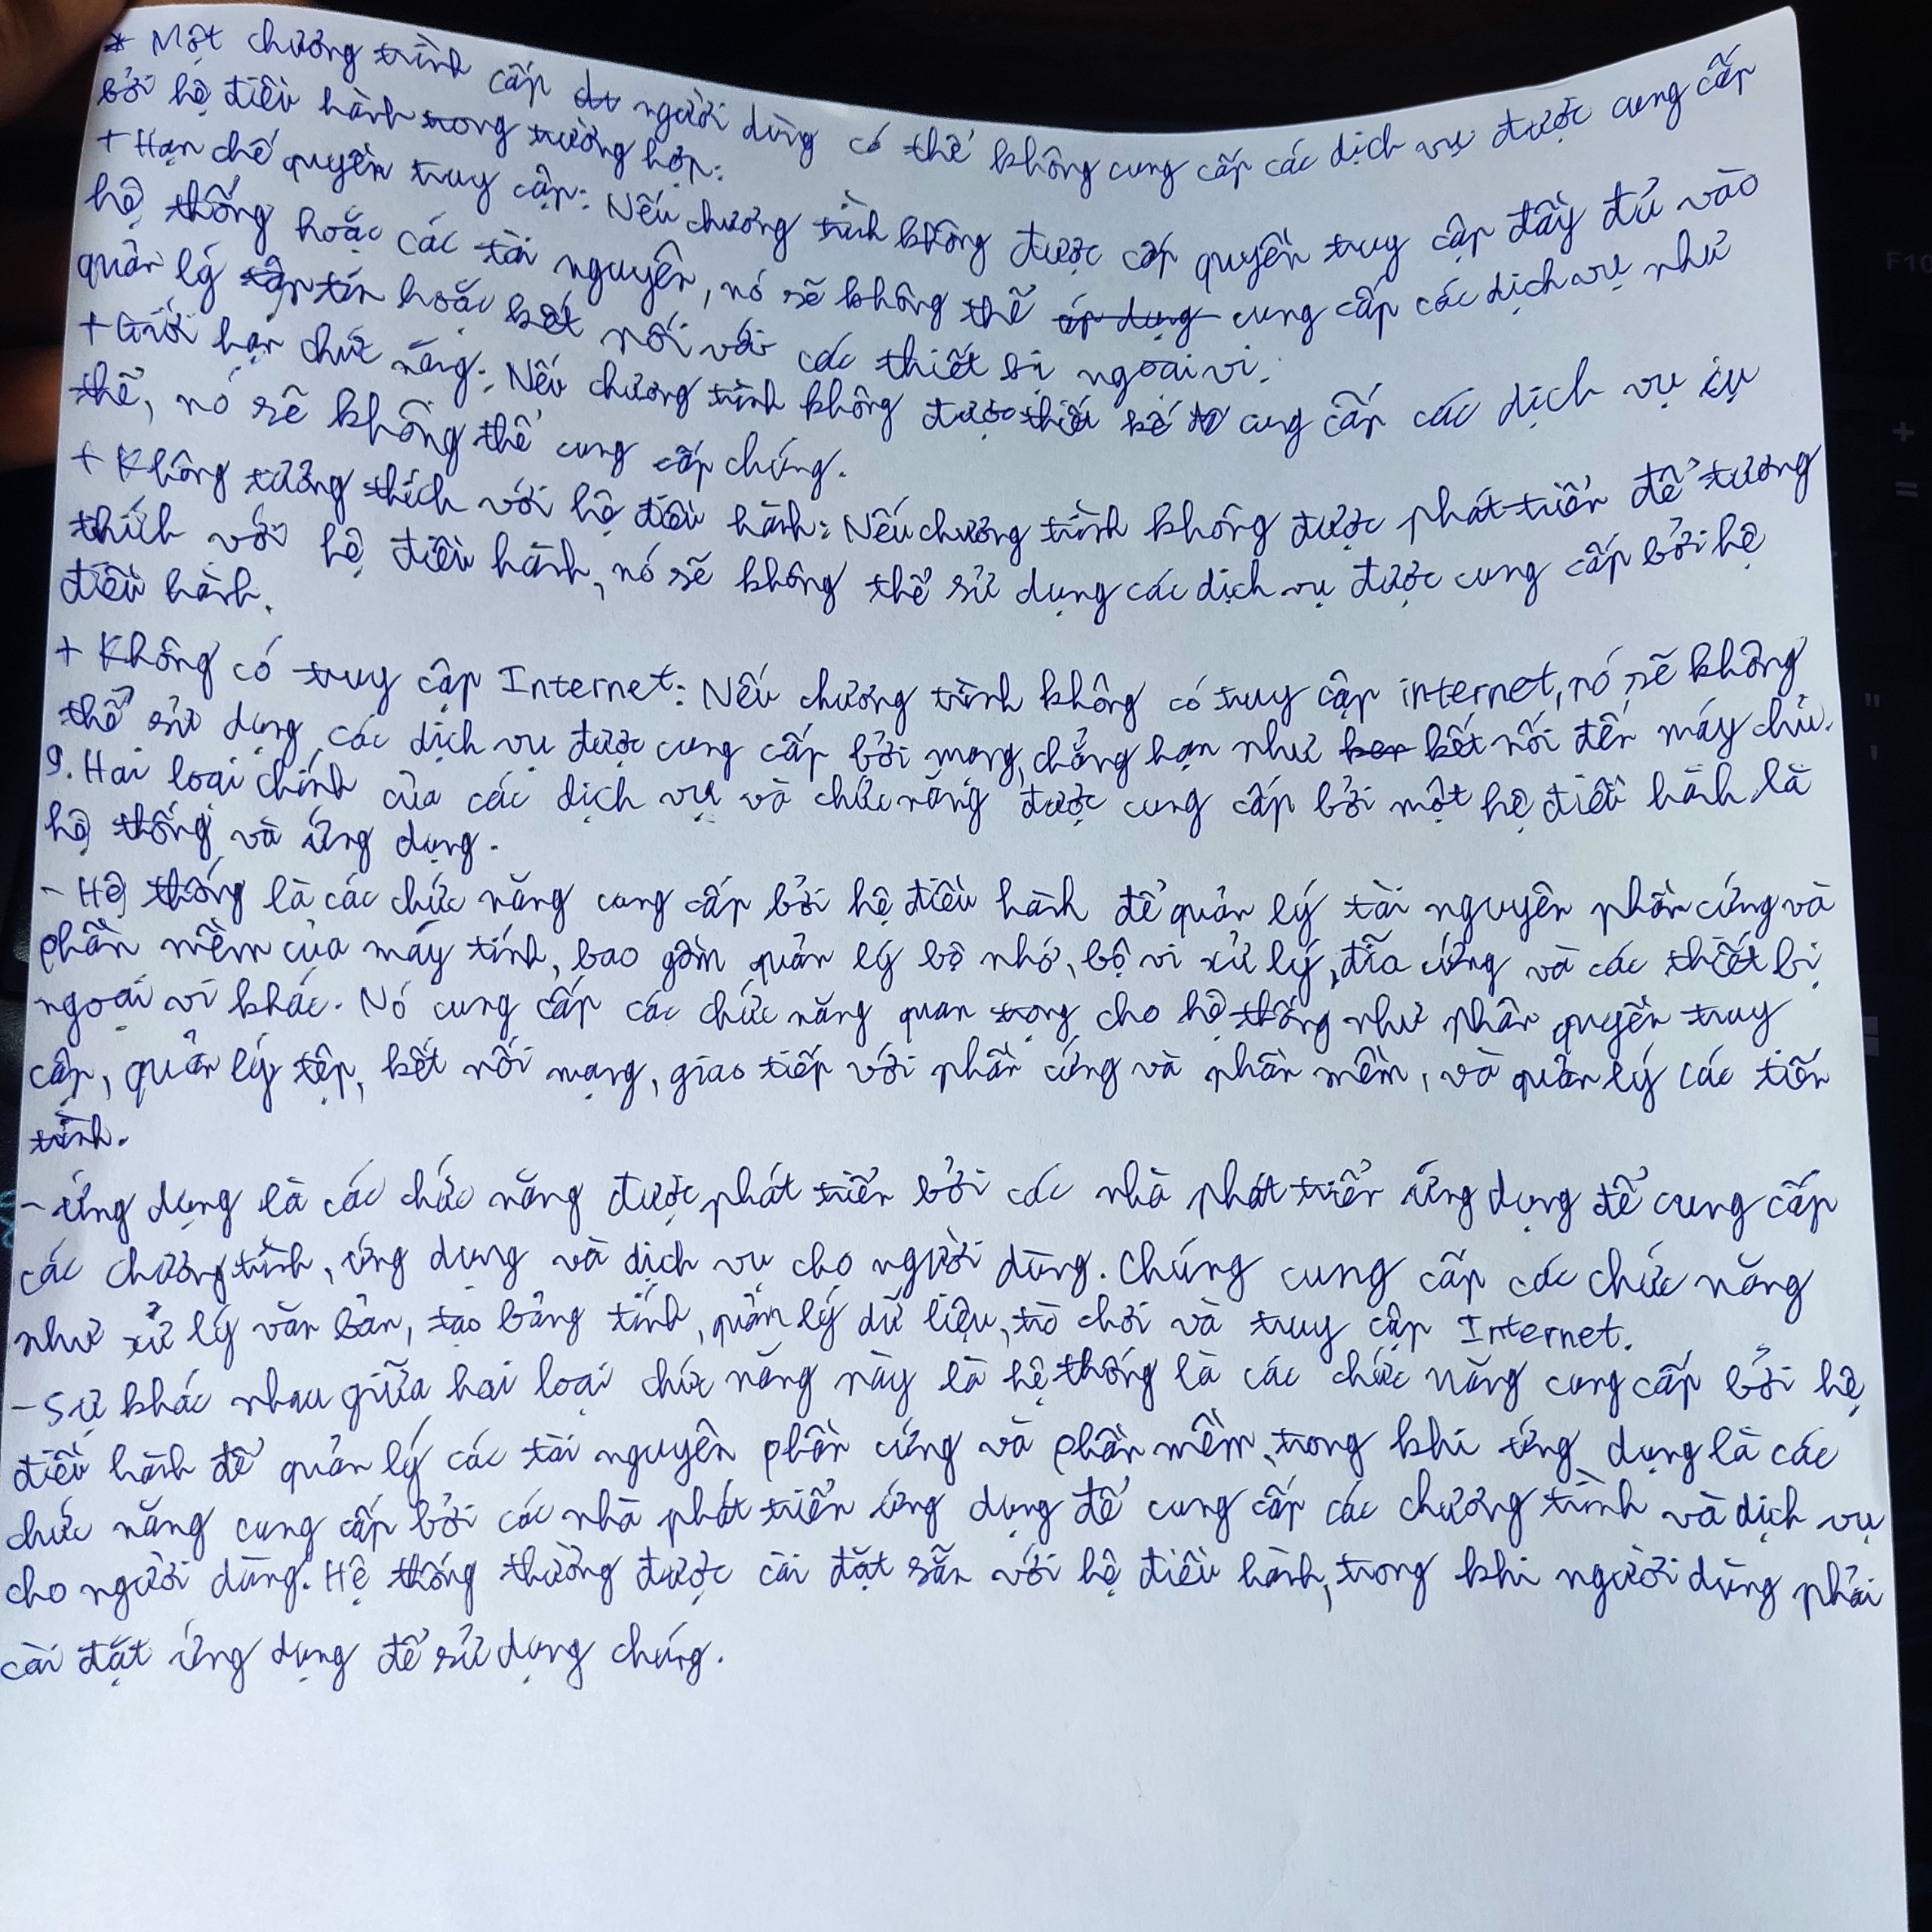 * Một chương trình cấp người dùng có thể không cung cấp các dịch vụ được cung cấp
bởi hệ điều hành trong trường hợp:
+ Hạn chế quyền truy cập: Nếu chương trình không được cấp quyền truy cập đầy đủ vào
hệ thống hoặc các tài nguyên, nó sẽ không thể áp dụng cung cấp các dịch vụ như
quản lý tập tin hoặc kết nối với các thiết bị ngoại vi.
+ Giới hạn chức năng: Nếu chương trình không được thiết kế để cung cấp các dịch vụ cụ
thể, nó sẽ không thể cung cấp chúng.
+ Không tương thích với hệ điều hành: Nếu chương trình không được phát triển để tương
thích với hệ điều hành, nó sẽ không thể sử dụng các dịch vụ được cung cấp bởi hệ
điều hành.
+ Không có truy cập Internet: Nếu chương trình không có truy cập internet, nó sẽ không
thể sử dụng các dịch vụ được cung cấp bởi mạng, chẳng hạn như kết nối đến máy chủ.
9. Hai loại chính của các dịch vụ và chức năng được cung cấp bởi một hệ điều hành là
hệ thống và ứng dụng.
- Hệ thống là các chức năng cung cấp bởi hệ điều hành để quản lý tài nguyên phần cứng và
phần mềm của máy tính, bao gồm quản lý bộ nhớ, bộ vi xử lý, đĩa cứng và các thiết bị
ngoại vi khác. Nó cung cấp các chức năng quan trọng cho hệ thống như phân quyền truy
cập, quản lý tệp, kết nối mạng, giao tiếp với phần cứng và phần mềm, và quản lý các tiến
trình.
- Ứng dụng là các chức năng được phát triển bởi các nhà phát triển ứng dụng để cung cấp
các chương trình, ứng dụng và dịch vụ cho người dùng. Chúng cung cấp các chức năng
như xử lý văn bản, tạo bảng tính, quản lý dữ liệu, trò chơi và truy cập Internet.
- Sự khác nhau giữa hai loại chức năng này là hệ thống là các chức năng cung cấp bởi hệ
điều hành để quản lý các tài nguyên phần cứng và phần mềm, trong khi ứng dụng là các
chức năng cung cấp bởi các nhà phát triển ứng dụng để cung cấp các chương trình và dịch vụ
cho người dùng. Hệ thống thường được cài đặt sẵn với hệ điều hành, trong khi người dùng phải
cài đặt ứng dụng để sử dụng chúng.